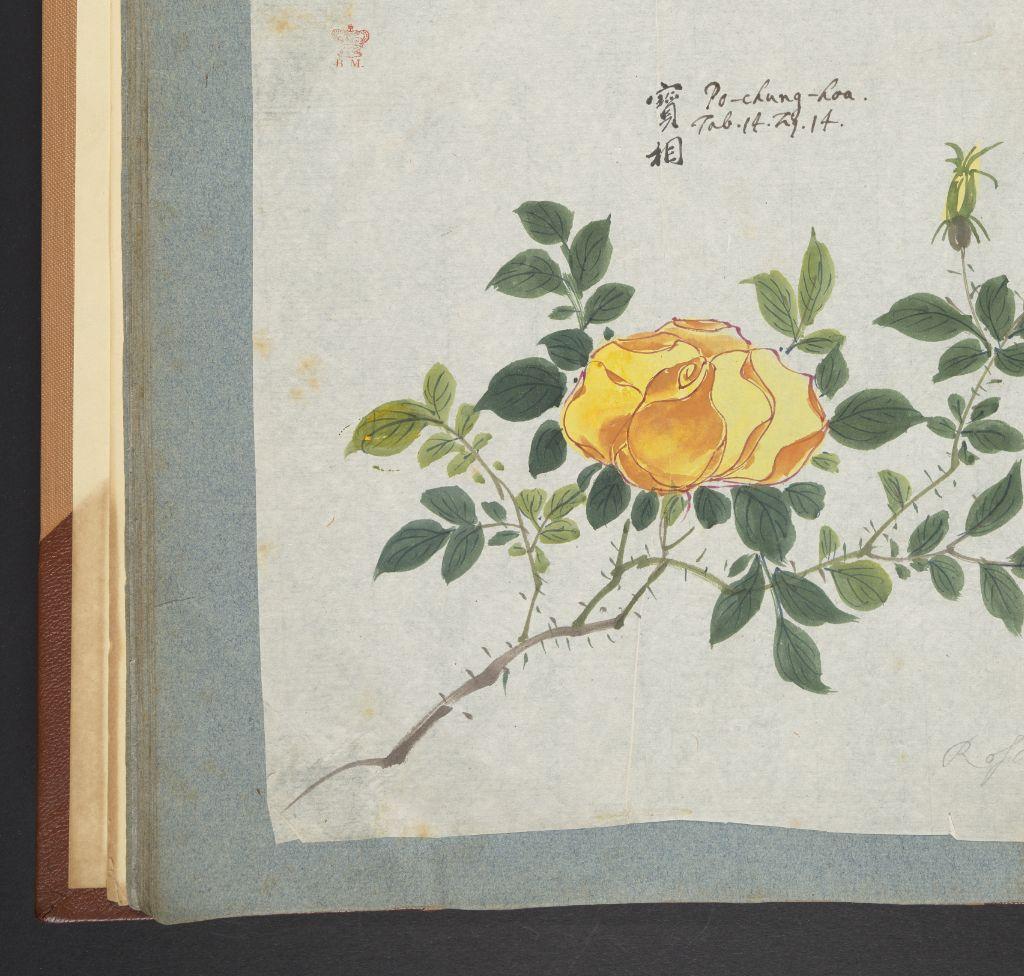 B M.
寶相
Po-chung-hoa.
Tab. 14. Fig. 14.